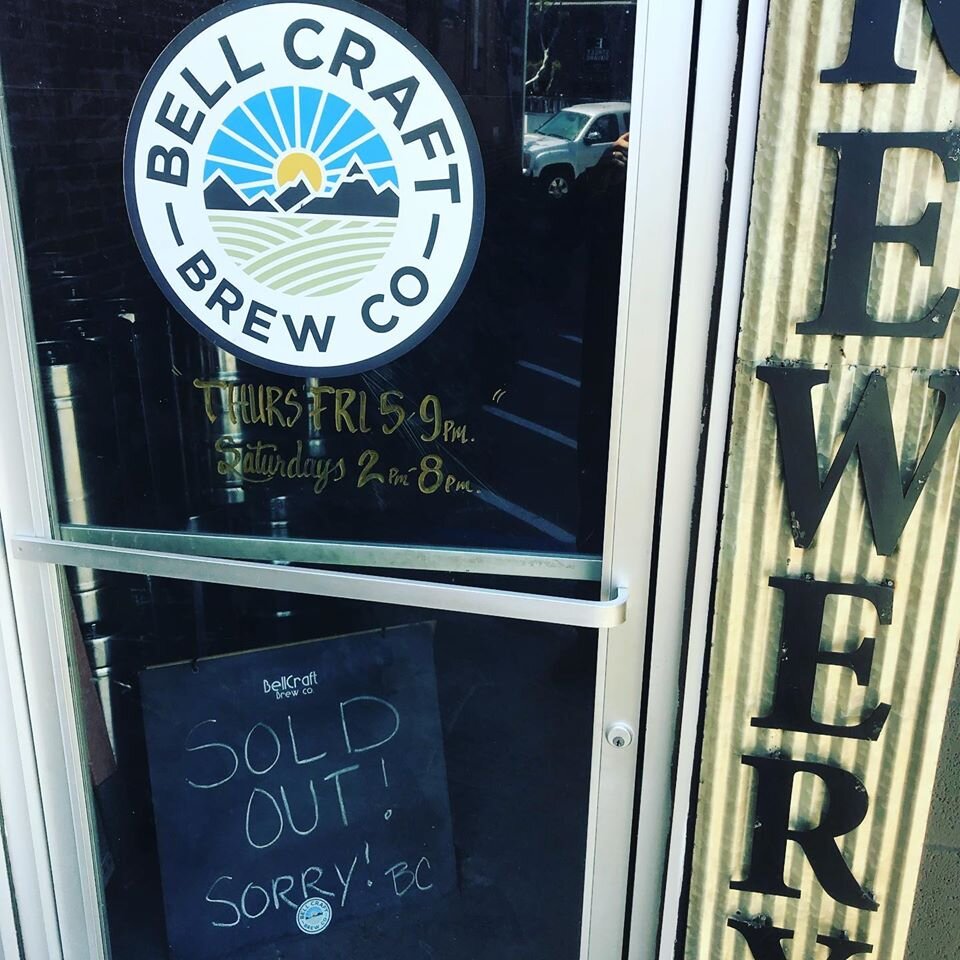 BELL CRAFT
BREW CO
"THURS FRI 5-9pm. "
Saturdays 2pm-8pm.
BellCraft
Brew co
SOLD
OUT!
SORRY! BC
BELL CRAFT
BREW CO
REWERY